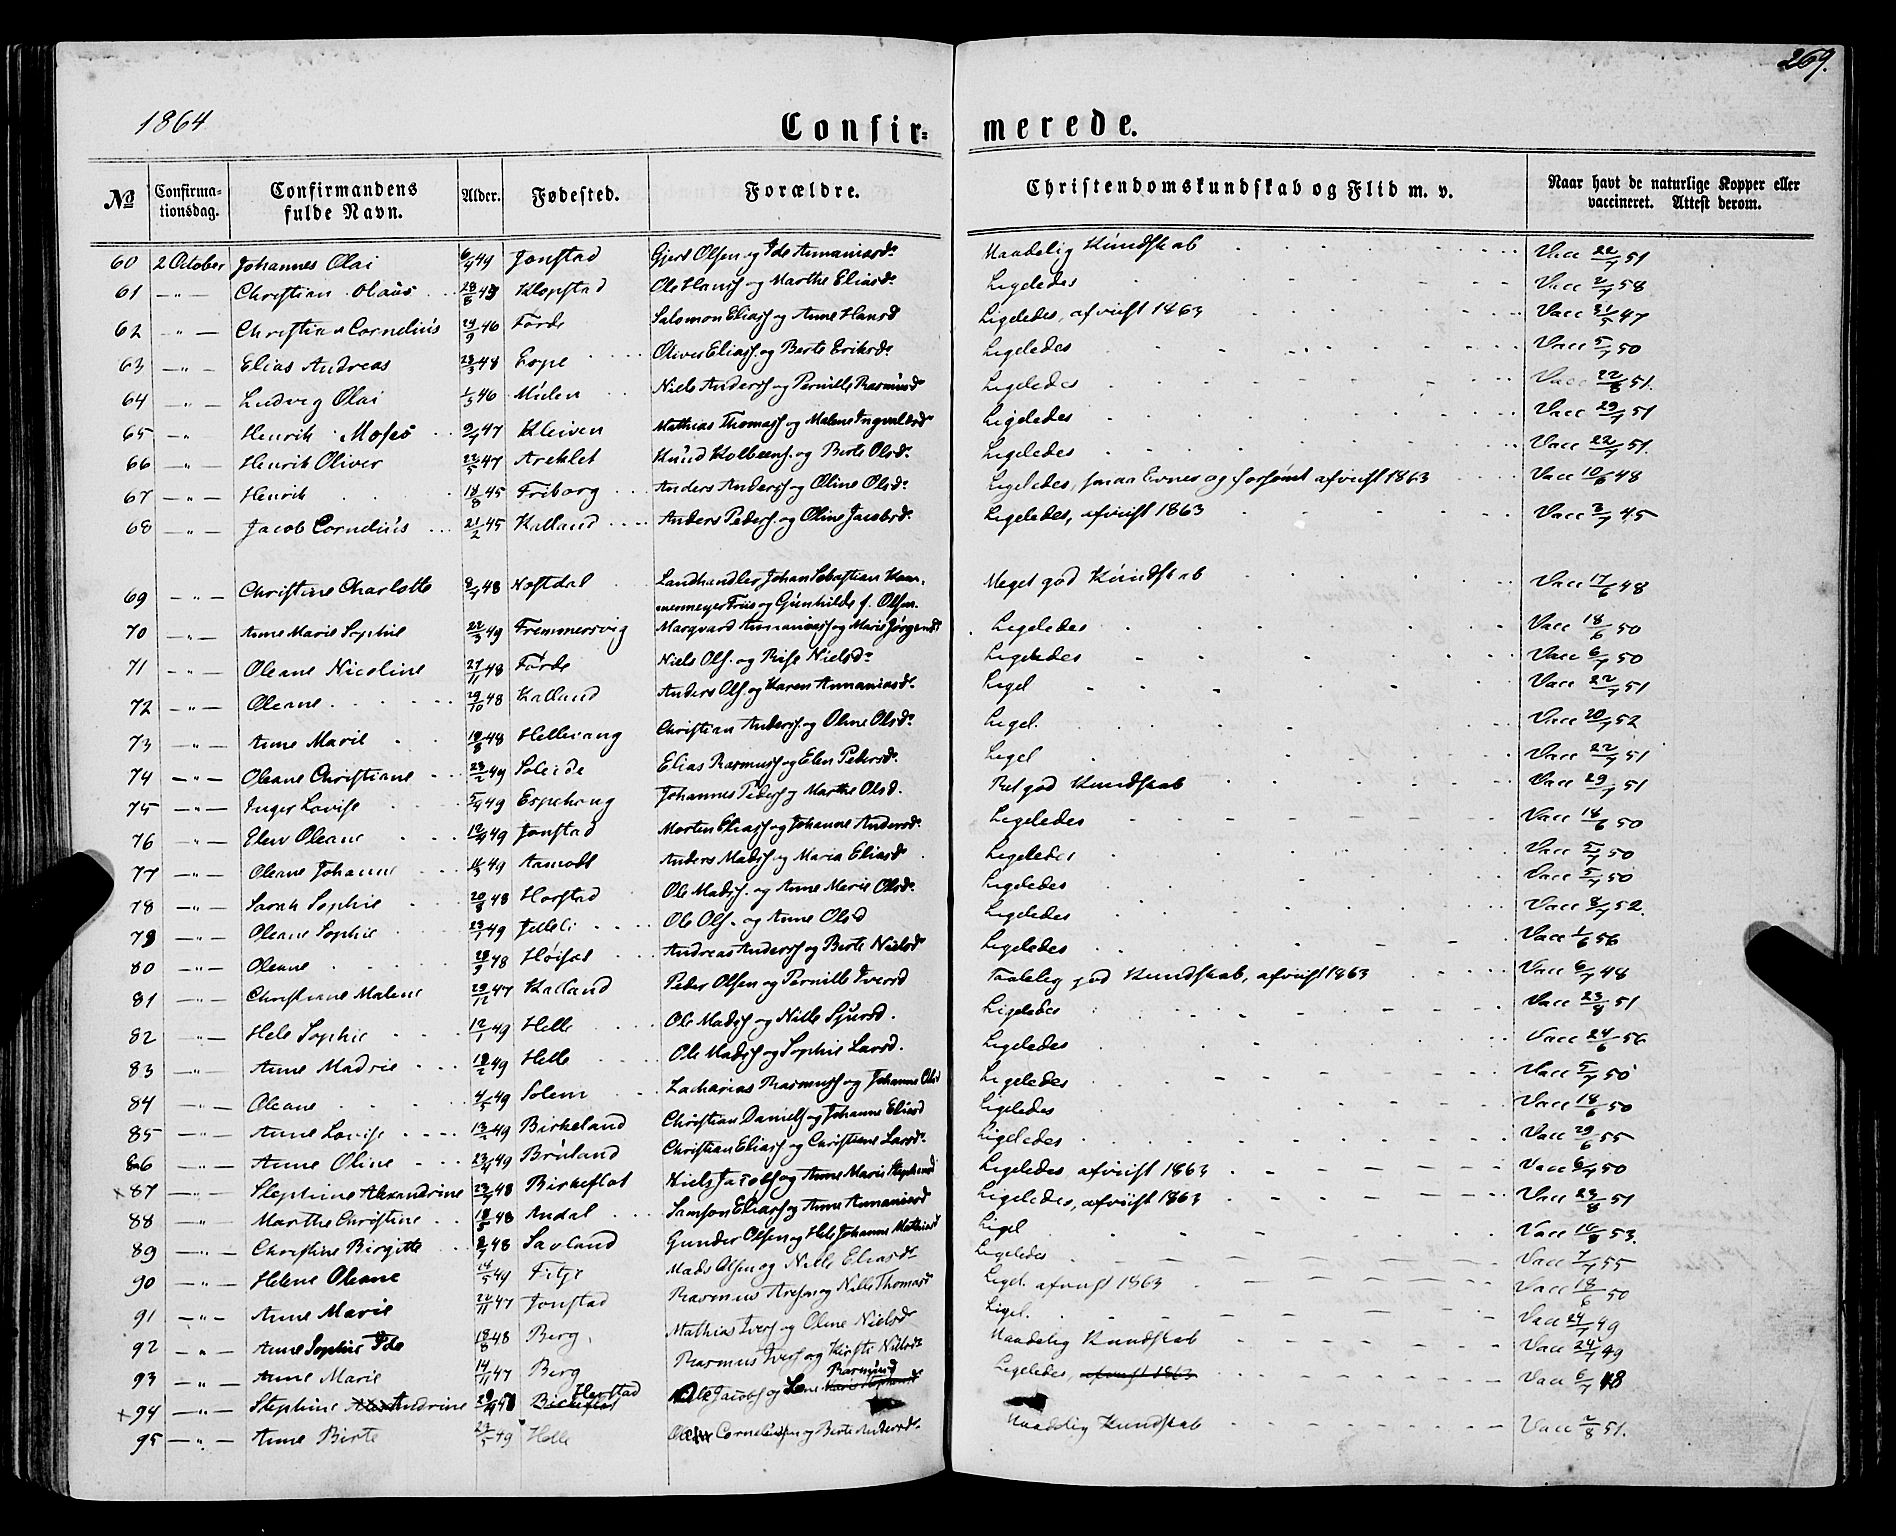 269.
1864
Confir= merede.
No Confirmationsdag. Confirmandens fulde Navn. Alder. Fødested. Forældre. Christendomskundskab og Flid m. v. Naar havt de naturlige Kopper eller vaccineret. Attest derom.
60 2 October Johannes Olai 6/4 49 Jonstad Gjert Olsen og Ide Annaniasd. Maadelig Kundskab Vacc 22/7 51
61 — " — Christian Olaüs Klopstad Ole Hanss og Marthe Eliasd. Ligeledes Vacc 2/7 58
62 " — Christian Cornelius 29/9 46 Førde Salomon Eliass og Anne Hansd Ligeledes, afviist 1863 Vacc 21/5 47
63 — " — Elias Andreas 28/3 48 Espe Oliver Eliass. og Berte Eriksd. Ligeledes Vacc 5/7 50
64 — " — Ludvig Olai 1/3 46 Mülen Niels Anderss og Pernille Rasmusd Ligeledes Vacc 22/8 51.
65 — " Henrik Moses 9/7 47 Kleiven Mathias Thomass og Malene Ingvaldsd Ligeledes Vacc 29/7 51
66 — " — Henrik Oliver 22/5 47 Areklet Knüd Kolbeens. og Berte Olsd. Ligeledes Vacc 22/7 51.
67 — " — Henrik 18/8 45 Friborg Anders Anderss og Oline Olsd. Ligeledes, smaa Evner og forsømt afviist 1863 Vacc 10/6 48
68 — " — Jacob Cornelius 21/2 45 Kalland Anders Peders. og Oline Jacobsd. Ligeledes, afviist 1863 Vacc 3/7 45
69 — " — Christine Charlotte 9/7 48 Nostdal Landhandler Johan Sebastian Kam-
mermeyer Friis og Günhilde f. Olsen. Meget god Kündskab Vacc 17/6 48
70 — " — Anne Marie Sophie 22/3 49 Fremmersvig Marqvard Annaniass og Marie Jørgensd Ligeledes Vacc 18/6 50
71 — " — Oleane Nicoline 27/11 48 Førde Niels Ols. og Rise Nielsd. Ligeledes Vacc 6/7 50
72 — " — Oleane 29/10 48 Kalland Anders Ols. og Karen Annaniasd. Ligel Vacc 22/7 51
73 — " — Anne Marie 18/8 48 Hellevang Christian Anderss. og Oline Olsd. Ligel. Vacc 20/7 52
74 — " — Oleane Christiane 23/2 49 Soleide Elias Rasmuss og Elen Pedersd. Ligel Vacc 22/7 51
75 — " — Inger Lovise 5/4 49 Espehaug Johannes Peders og Marthe Olsd. Ret god Kundskab Vacc 29/7 51
76 — " — Elen Oleane 49 Jonstad Morten Eliass og Johanne Andersd. Ligeledes Vacc 18/6 50
77 — " — Oleane Johanne 49 Aamodt Anders Madss og Maria Eliasd Ligeledes Vacc 5/7 50
78 — " — Sarah Sophie 20/8 48 Horstad Ole Madss. og Anne Marie Olsd. Ligeledes Vacc 5/7 50
79 — " — Oleane Sophie 23/1 49 Jelleli Ole Ols. og Anne Olsd Ligeledes Vacc 8/7 52.
80 — " — Oleane 28/9 48 Andreas Anderss og Berte Nielsd Ligeledes Vacc 1/6 56
81 — " — Christiane Malene 29/12 47 Kalland Peder Olsen og Pernille Iversd Taalelig god Kundskab, afviist 1863 Vacc 6/7 48
82 — " — Hele Sophie 12/1 49 Helle Ole Madss og Nille Sjursd. Ligeledes Vacc 23/8 51
83 — " — Anne Madrie 18/2 49 Helle Ole Madss og Sophie Larsd. Ligeledes Vacc 24/6 56
84 — " — Oleane 4/5 49 Solem Zacharias Rasmuss og Johanne Olsd Ligeledes Vacc 5/7 50
85 — " — Anne Lovise 49 Birkeland Christian Daniels og Johanne Eliasd Ligeledes Vacc 18/6 50
86 — " — Anne Oline 49 Brüland Christian Eliass og Christiane Larsd. Ligeledes Vacc 29/6 55
x 87 — " — Stephine Alexandrine 48 Birkeflot Niels Jacobs og Anne Marie Stephensd Ligeledes, afviist 1863 Vacc 6/7 50
88 — " — Marthe Christine 48 Andal Samson Eliass og Anne Annaniasd Ligeledes, afviist 1863 Vacc 23/8 51
89 — " — Christine Birgitte 48 Savland Gunder Olsen og Hele Johanne Mathiasd Ligel Vacc 53.
90 — " — Helene Oleane 14/5 49 Fitje Mads Olsen og Nille Eliasd. Ligeledes Vacc 7/7 55
91 — " — Anne Marie 22/11 47 Jonstad Rasmus Aresen og Nille Thomasd Ligel. afviist 1863 Vacc 18/6 50
92 — " — Anne Sophie Ide 18/8 48 Berg Mathias Ivers og Oline Nielsd Ligel. Vacc 24/7 49
93 — " — Anne Marie 14/11 47 Berg Rasmus Ivers og Kirsti Nilsd. Maadelig Kundskab Vacc 24/7 49
x 94 — " — Stephine Andrine 48 Birkeflot Horstad Ole Jacobs og Lene Rasmusd Ligeledes, afviist 1863 Vacc 6/7 48
95 — " — Anne Birte 23/5 49 Helle Ole Corneliussen og Berte Andersd. Maadelig Kundskab Vacc 2/8 51.